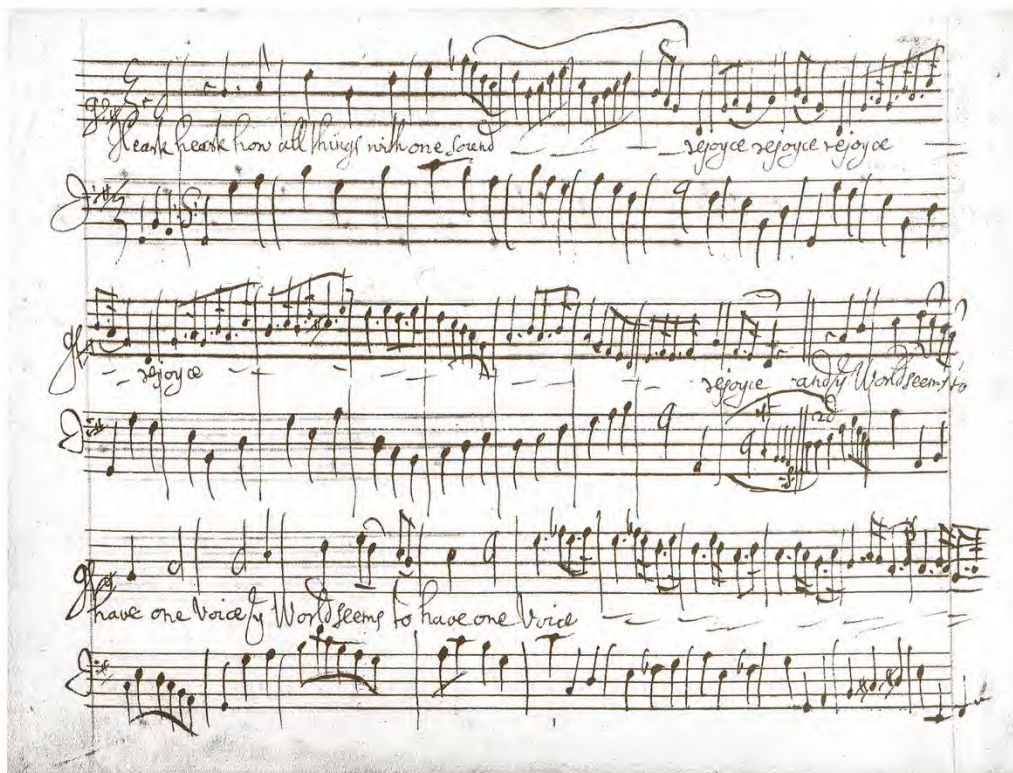 Heark heark how all things with one sound rejoyce rejoyce rejoyce
rejoyce rejoyce and yͤ World seems to
1st 2d
have one Voice yͤ World seems to have one Voice